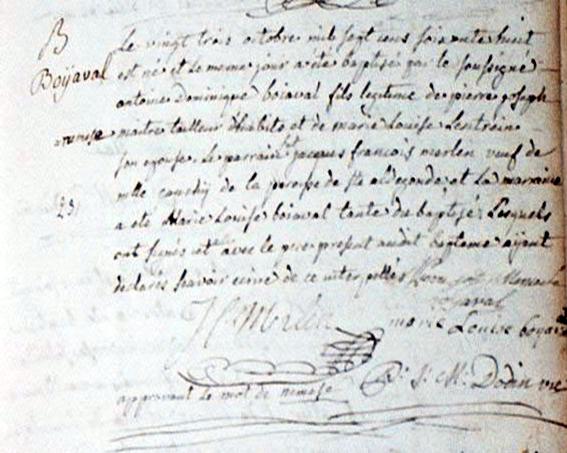 B
Boÿaval
Le vingt trois octobre mil sept cens soixante huit
est né et le meme jour a été baptisé par le soussigné
antoine Dominique boiaval fils legitime de pierre joseph
maitre tailleur d'habits et de marie Louise
son epouse. Le parrain jacques francois merlen veuf de
de la paroisse de ste aldegonde, et La marraine
23
a eté Marie Louise boiaval tante du baptisé. Lesquels
ont signés avec le pere present audit bapteme ayant
declarés scavoir ecrire de ce interpellés
boyaval
Merlen
marie Louise boyaval
approuvant le mot de
Dodin